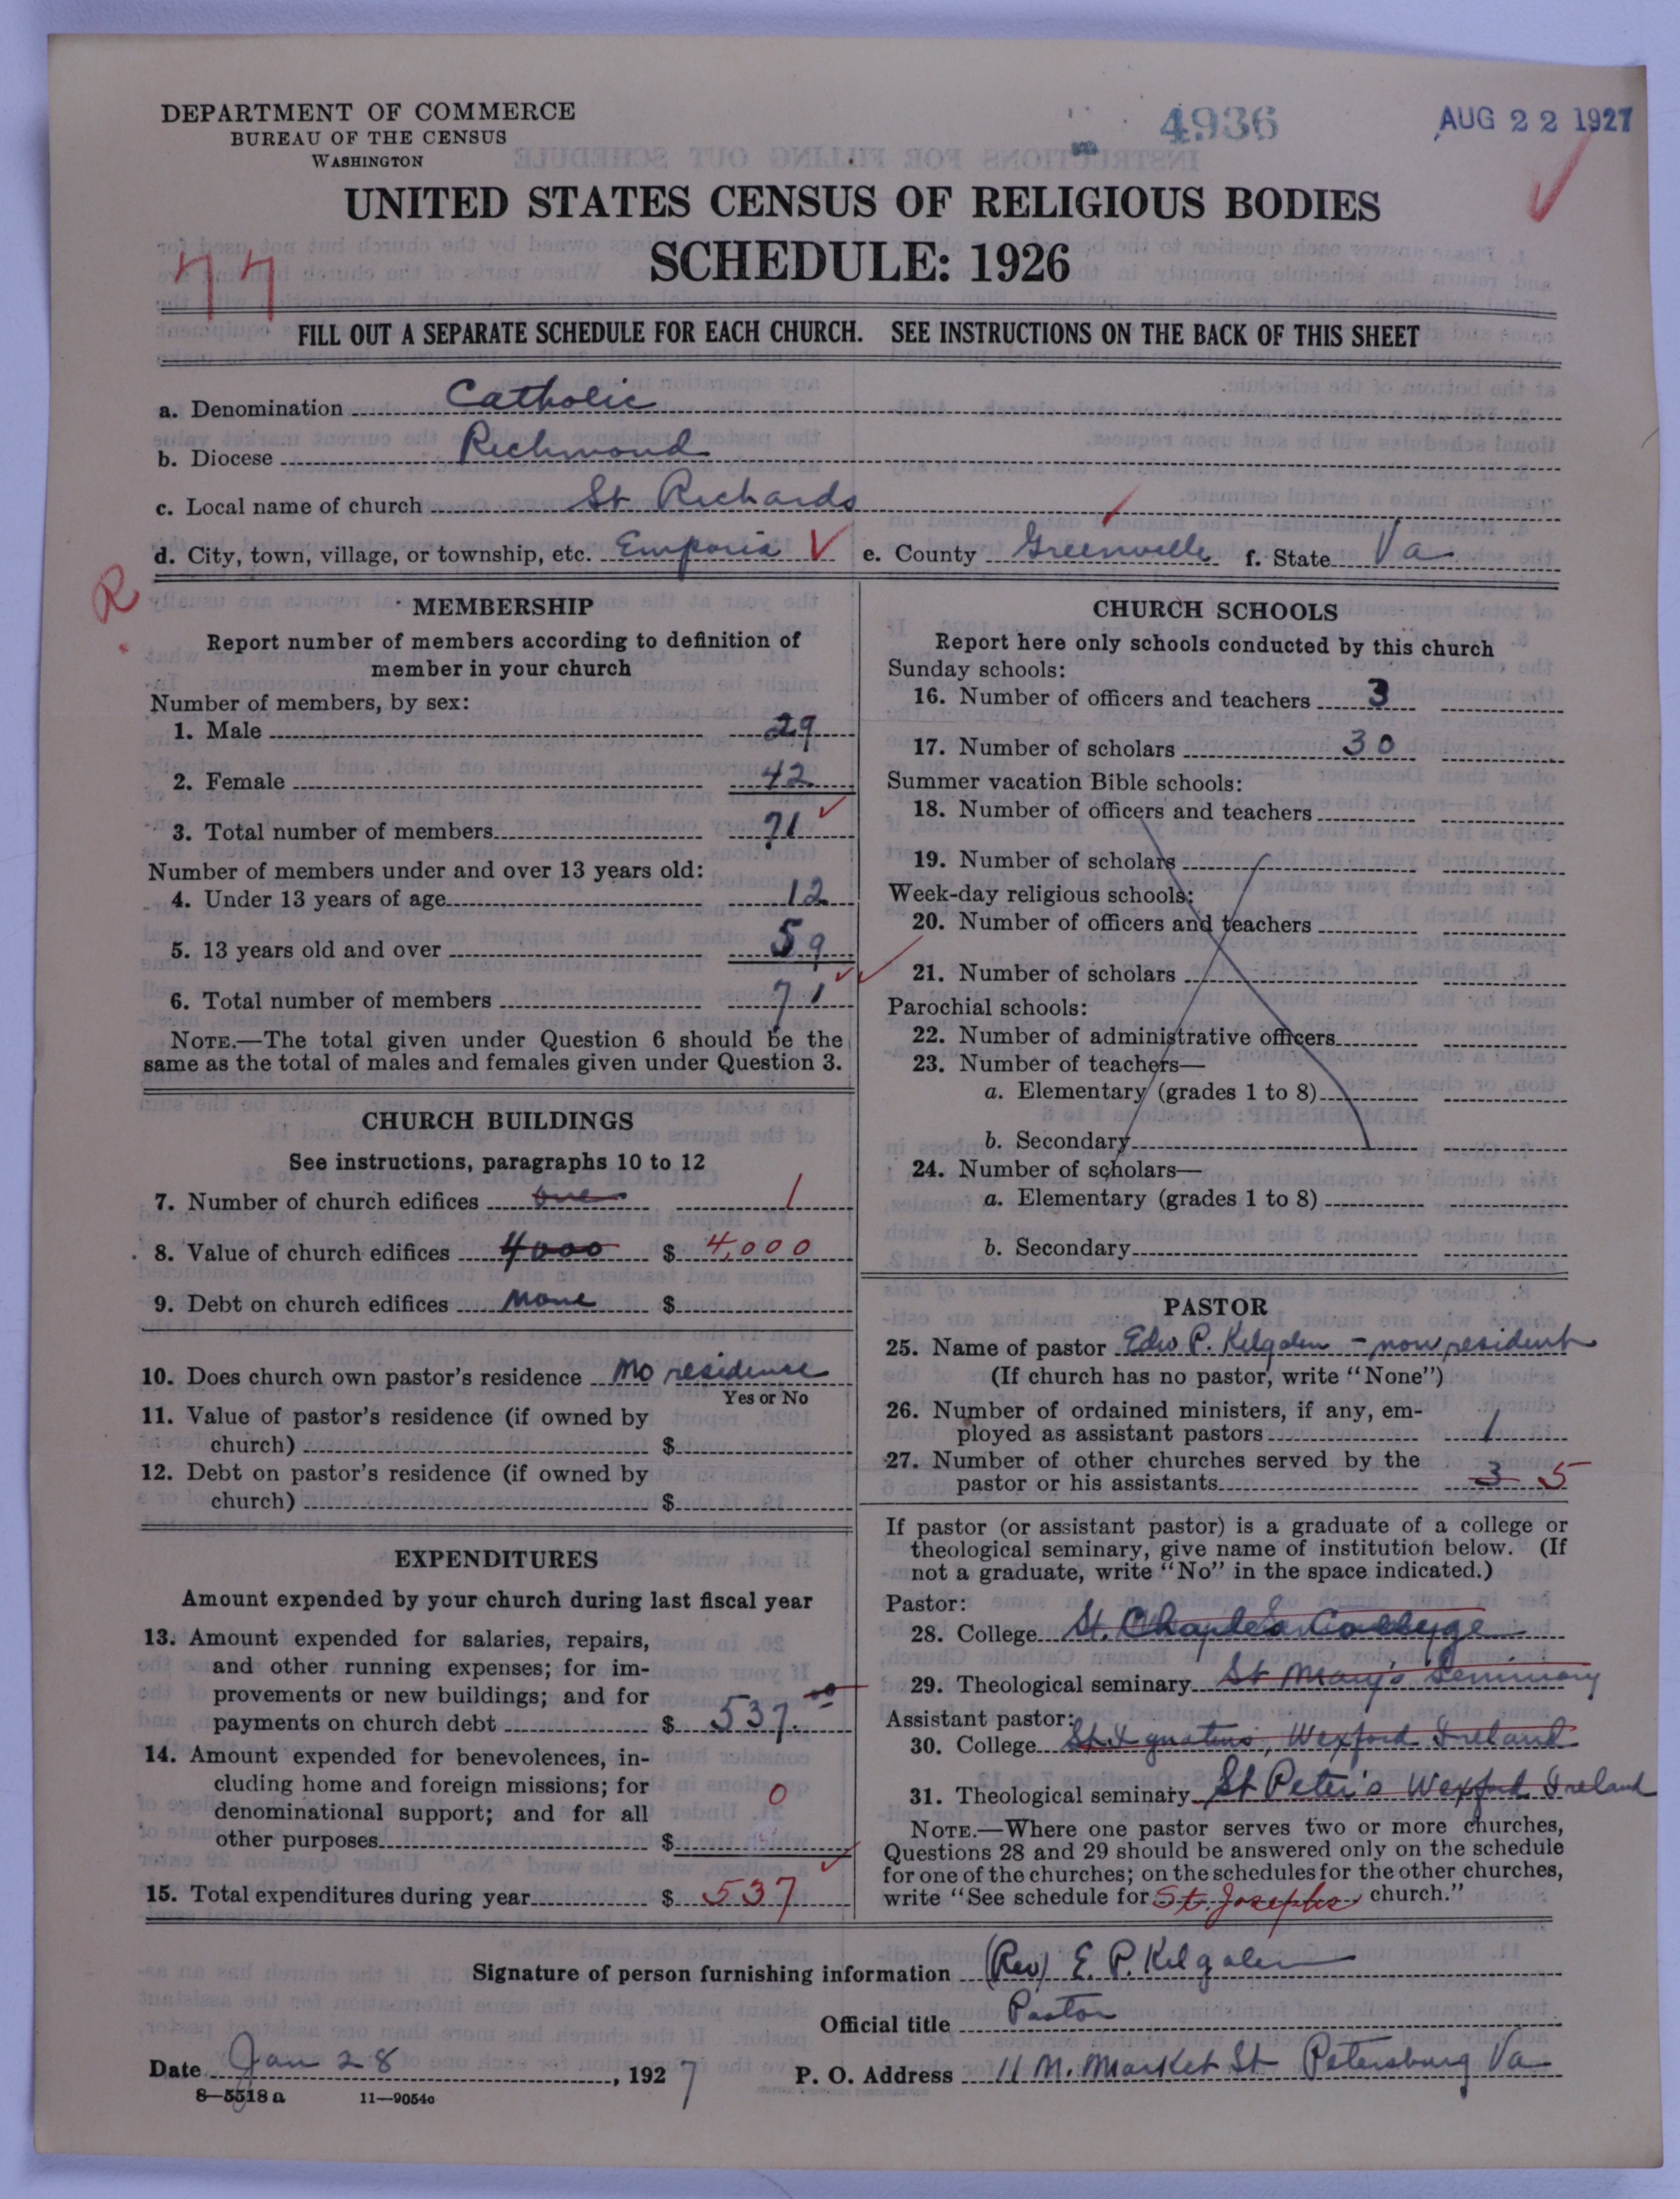 DEPARTMENT OF COMMERCE
BUREAU OF THE CENSUS
WASHINGTON
4936
AUG 22 1927
UNITED STATES CENSUS OF RELIGIOUS BODIES
SCHEDULE: 1926
FILL OUT A SEPARATE SCHEDULE FOR EACH CHURCH. SEE INSTRUCTIONS ON THE BACK OF THIS SHEET
a. Denomination Catholic
b. Diocese Richmond
c. Local name of church St Richards
d. City, town, village, or township, etc. Emporia e. County Greenville f. State Va
R
MEMBERSHIP
Report number of members according to definition of
member in your church
Number of members, by sex:
1. Male 29
2. Female 42
3. Total number of members 71
Number of members under and over 13 years old:
4. Under 13 years of age 12
5. 13 years old and over 59
6. Total number of members 71
NOTE.—The total given under Question 6 should be the
same as the total of males and females given under Question 3.
CHURCH BUILDINGS
See instructions, paragraphs 10 to 12
7. Number of church edifices one 1
8. Value of church edifices 4000 $ 4,000
9. Debt on church edifices none $
10. Does church own pastor's residence no residence
Yes or No
11. Value of pastor's residence (if owned by
church) $
12. Debt on pastor's residence (if owned by
church) $
EXPENDITURES
Amount expended by your church during last fiscal year
13. Amount expended for salaries, repairs,
and other running expenses; for im-
provements or new buildings; and for
payments on church debt $ 537.00
14. Amount expended for benevolences, in-
cluding home and foreign missions; for
denominational support; and for all
other purposes $ 0
15. Total expenditures during year $ 537
CHURCH SCHOOLS
Report here only schools conducted by this church
Sunday schools:
16. Number of officers and teachers 3
17. Number of scholars 30
Summer vacation Bible schools:
18. Number of officers and teachers
19. Number of scholars
Week-day religious schools:
20. Number of officers and teachers
21. Number of scholars
Parochial schools:
22. Number of administrative officers
23. Number of teachers—
a. Elementary (grades 1 to 8)
b. Secondary
24. Number of scholars—
a. Elementary (grades 1 to 8)
b. Secondary
PASTOR
25. Name of pastor Edw P. Kilgalen - non resident
(If church has no pastor, write "None")
26. Number of ordained ministers, if any, em-
ployed as assistant pastors 1
27. Number of other churches served by the
pastor or his assistants 3 5
If pastor (or assistant pastor) is a graduate of a college or
theological seminary, give name of institution below. (If
not a graduate, write "No" in the space indicated.)
Pastor:
28. College St. Charles College
29. Theological seminary St Mary's Seminary
Assistant pastor:
30. College St Ignatius, Wexford Ireland
31. Theological seminary St Peter's Wexford Ireland
NOTE.—Where one pastor serves two or more churches,
Questions 28 and 29 should be answered only on the schedule
for one of the churches; on the schedules for the other churches,
write "See schedule for St. Josephs church."
Signature of person furnishing information (Rev) E. P. Kilgalen
Official title Pastor
Date Jan 28, 1927 P. O. Address 11 N. Market St Petersburg Va
8—5518a 11—9054c